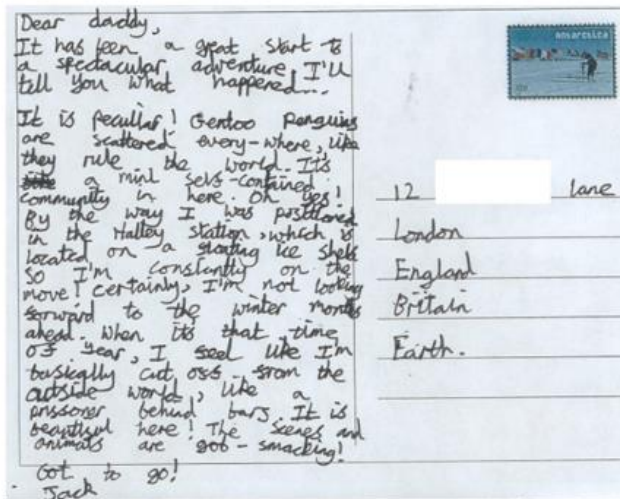 Dear daddy,
It has been a great start to
a spectacular adventure I'll
tell you what happened...
It is peculiar! Gentoo Penguins
are scattered every-where, like
they rule the world. It's
a mini self-contained
community in here. Oh yes!
By the way I was positioned
in the Halley Station, which is
located on a floating ice shelf
So I'm constantly on the
move! Certainly, I'm not looking
forward to the winter months
ahead. When it's that time
of year, I feel like I'm
basically cut off from the
outside world, like a
prisoner behind bars. It is
beautiful here! The scenes and
animals are gob-smacking!
Got to go!
Jack
antarctica
12 lane
London
England
Britain
Earth.